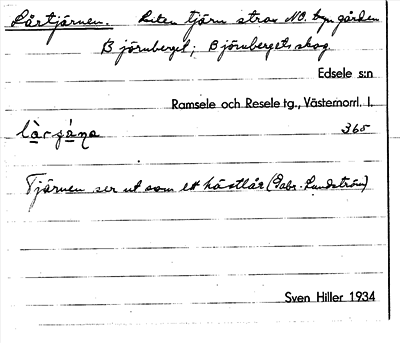 Lårtjärnen. Liten tjärn strax NO. byn gården
Björnberget; Björnbergets skog
Edsele s:n
Ramsele och Resele tg., Västernorrl. l.
365
Tjärnen ser ut som ett hästlår (Gabr. Lundström)
Sven Hiller 1934